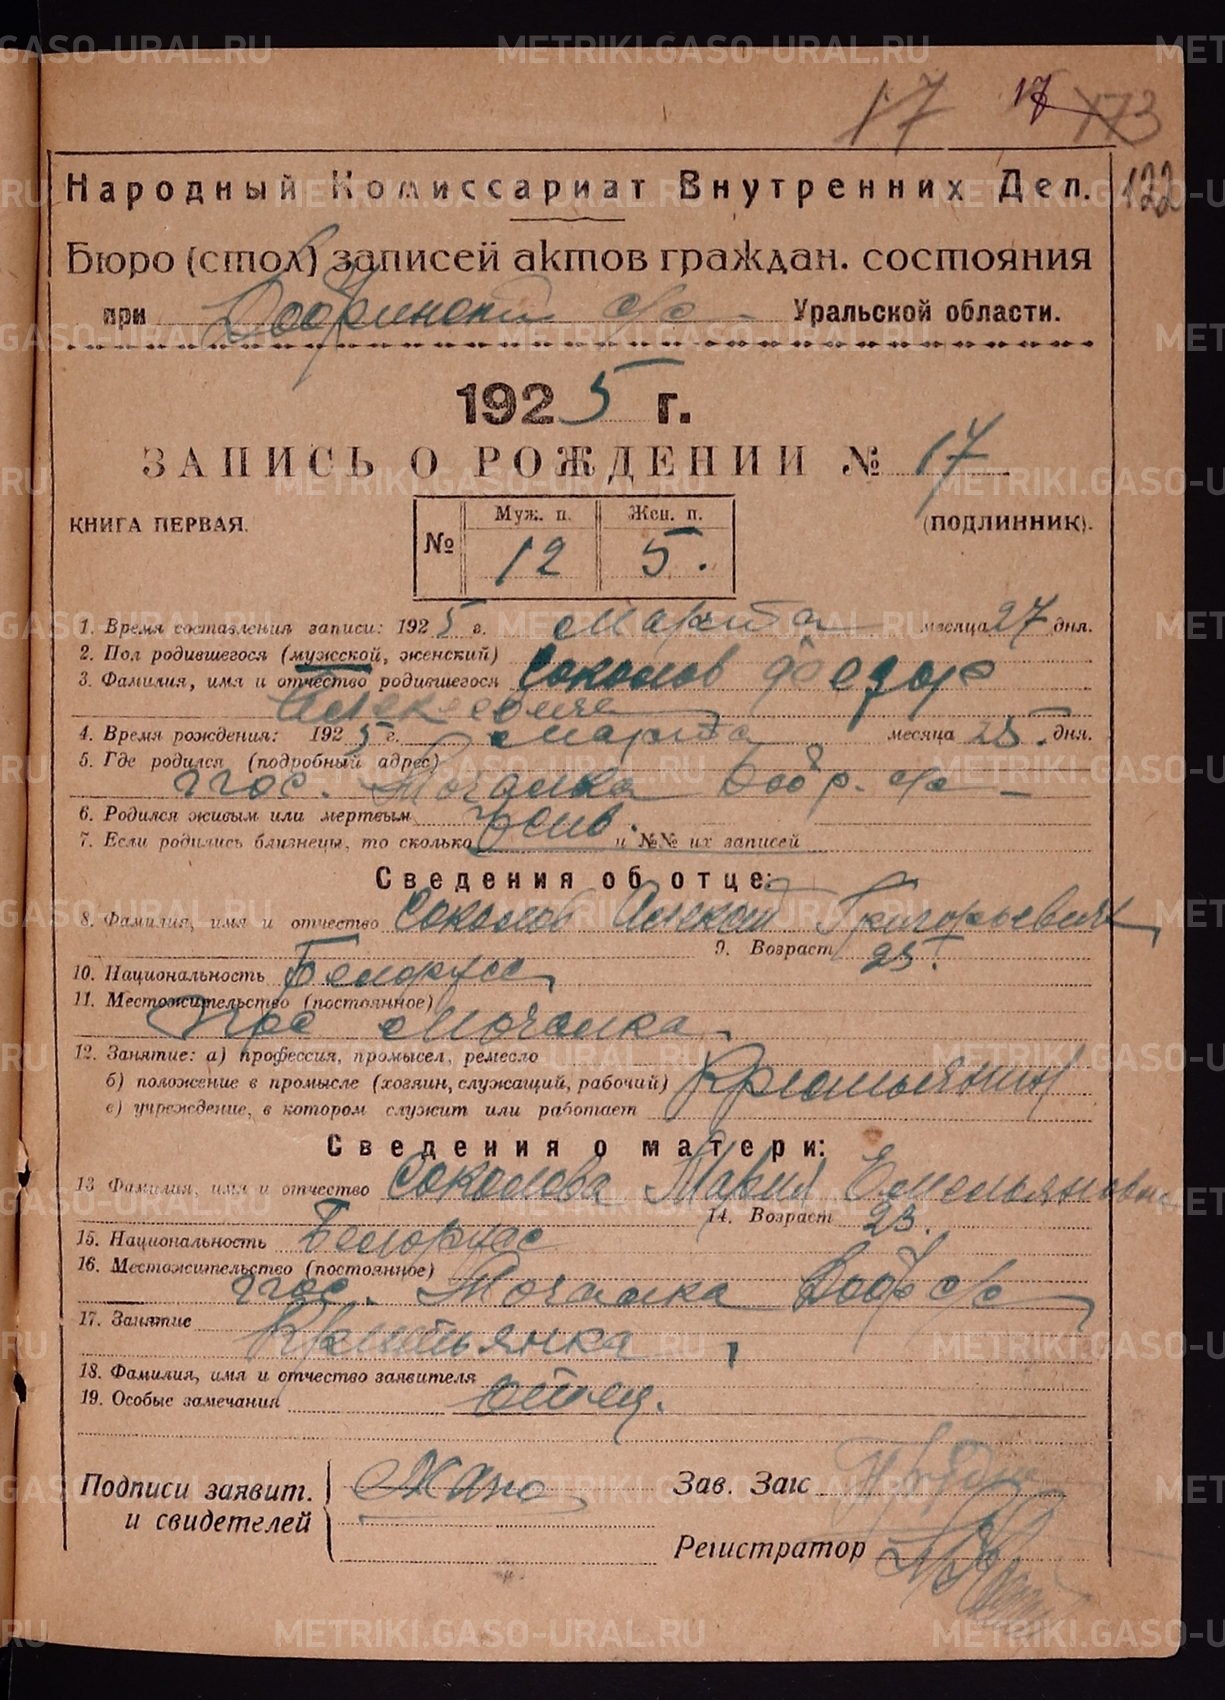 17 17 173
Народный Комиссариат Внутренних Дел.
122
Бюро (стол) записей актов граждан. состояния
при Добринском с/с Уральской области.
1925 г.
ЗАПИСЬ О РОЖДЕНИИ № 17
КНИГА ПЕРВАЯ. (ПОДЛИННИК).
№ Муж. п. Жен. п.
12 5.
1. Время составления записи: 1925 г. Марта месяца 27 дня.
2. Пол родившегося (мужской, женский)
3. Фамилия, имя и отчество родившегося Соколов Федор
Алексеевич
4. Время рождения: 1925 г. Марта месяца 25 дня.
5. Где родился (подробный адрес)
пос. Мочалка Добр. с/с
6. Родился живым или мертвым Жив.
7. Если родились близнецы, то сколько и №№ их записей
Сведения об отце:
8. Фамилия, имя и отчество Соколов Алексей Григорьевич
9. Возраст 25.
10. Национальность Белорусс
11. Местожительство (постоянное)
пос Мочалка
12. Занятие: а) профессия, промысел, ремесло
б) положение в промысле (хозяин, служащий, рабочий) Крестьянин
в) учреждение, в котором служит или работает
Сведения о матери:
13 Фамилия, имя и отчество Соколова Мария Емельяновна
14. Возраст 23.
15. Национальность Белорус
16. Местожительство (постоянное)
пос. Мочалка Добр с/с
17. Занятие
Крестьянка
18. Фамилия, имя и отчество заявителя
19. Особые замечания отец.
Подписи заявит.
и свидетелей
Зав. Загс
Регистратор
METRIKI.GASO-URAL.RU